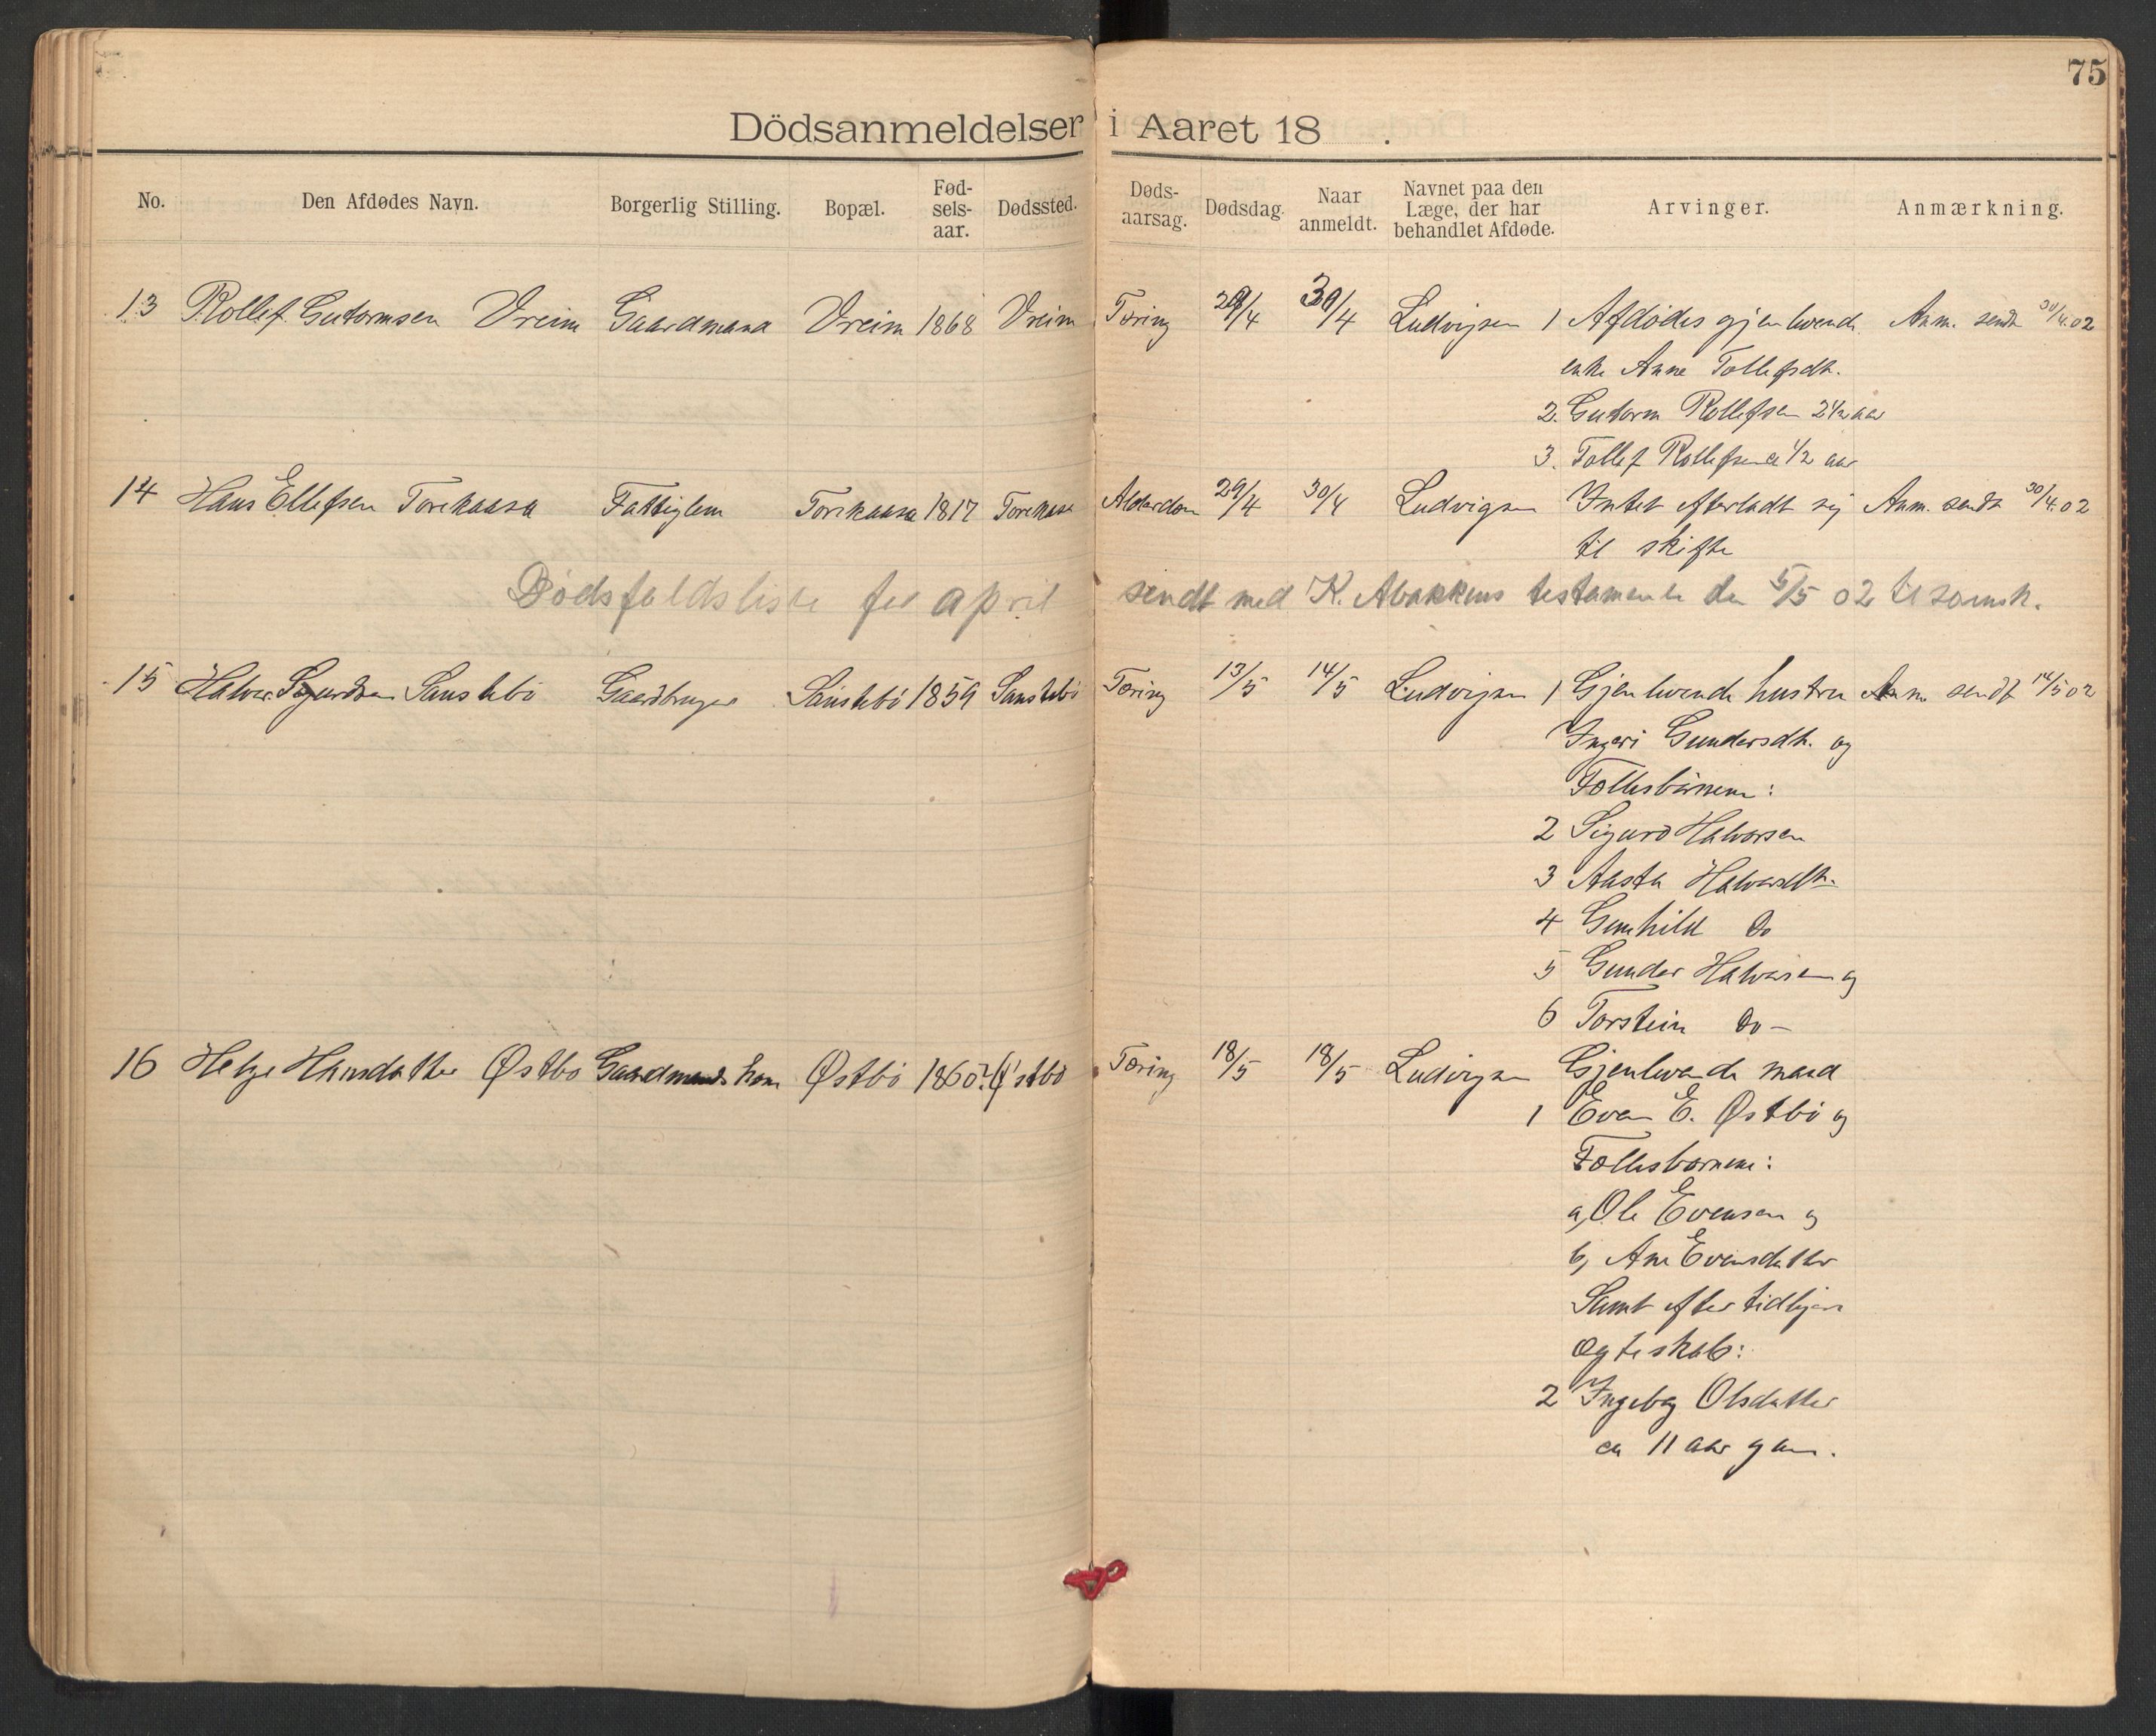 75
Dödsanmeldelser i Aaret 18 .
No. Den Afdødes Navn. Borgerlig Stilling. Bopæl. Fød-sels-aar. Dødssted. Døds-aarsag. Dødsdag. Naar anmeldt. Navnet paa den Læge, der har behandlet Afdøde. Arvinger. Anmærkning.
13 Rollef Gutormsen Vreim Gaardmand Vreim 1868 Vreim Tæring 29/4 30/4 Ludvigsen 1 Afdødes gjenlevende Anm. sendt 30/4.02
enke Anne Tollefsdt.
2. Gutorm Rollefsen 2 1/2 aar
3. Tollef Rollefsen 1/2 aar
14 Hans Ellefsen Torekaasa Fattiglem Torekaasa 1817 Torekaasa Alderdom 29/4 30/4 Ludvigsen Intet efterladt sig Anm. sendt 30/4.02
til skifte
Dödsfaldsliste for april sendt med K. Abakkens testamente den 5/5 02 til sorensk.
15 Halvor Sigurdsen Sanstebö Gaardbruger Sanstebö 1859 Sanstebö Tæring 13/5 14/5 Ludvigsen 1 Gjenlevende hustru Anm. sendt 14/5 02
Ingeri Gundersdt. og
Fællesbörnene:
2 Sigurd Halvorsen
3 Aaste Halvorsdt.
4 Gunhild Do
5 Gunder Halvorsen og
6 Torstein Do -
16 Helge Hansdatter Østbö Gaardmandskone Østbö 1860? Østbö Tæring 18/5 18/5 Ludvigsen Gjenlevende mand
1 Even E. Østbö og
Fællesbörnene:
a, Ole Evensen og
b, Ane Evensdatter
Samt efter tidligere
Ægteskab:
2 Ingebg Olsdatter
ca 11 aar gam.